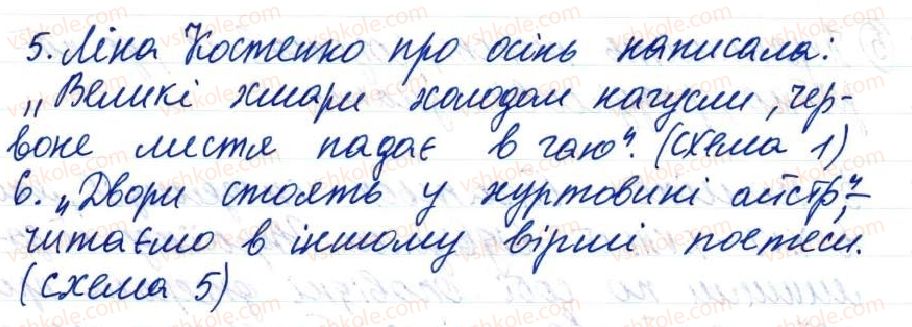 5. Ліна Костенко про осінь написала:
„Великі хмари холодом нагусли, чер-
воне листя падає в гаю". (схема 1)
6. „Двори стоять у хуртовині айстр", –
читаємо в іншому вірші поетеси.
(схема 5)